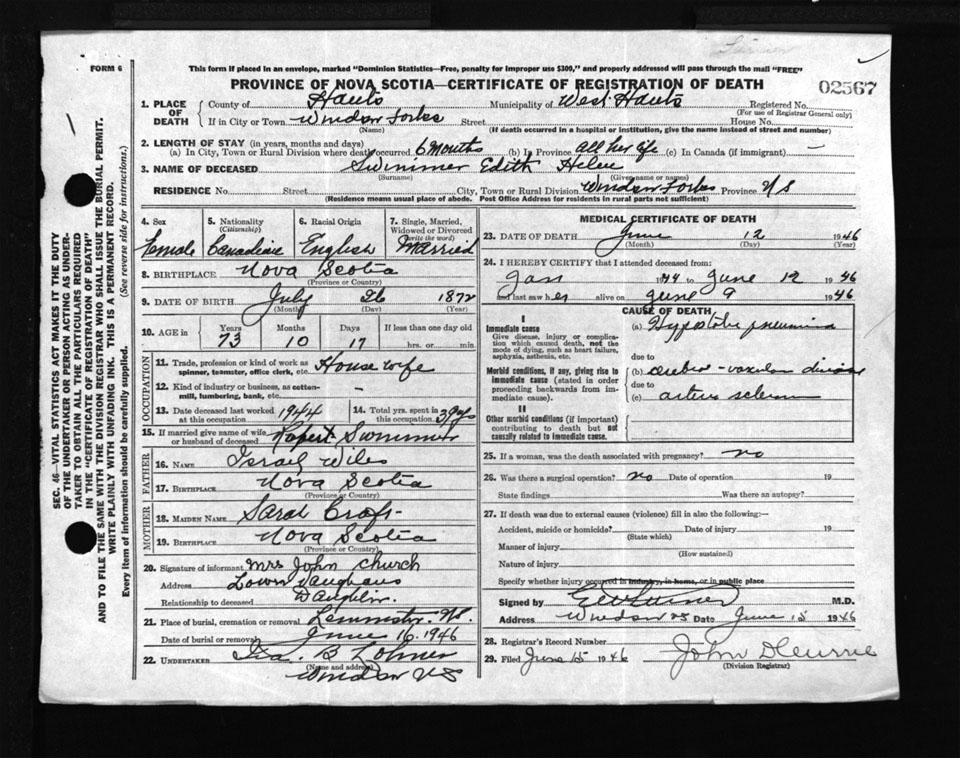 FORM 6
This form if placed in an envelope, marked "Dominion Statistics—Free, penalty for improper use $300," and properly addressed will pass through the mail "FREE"
PROVINCE OF NOVA SCOTIA—CERTIFICATE OF REGISTRATION OF DEATH
02567
SEC. 46—VITAL STATISTICS ACT MAKES IT THE DUTY
OF THE UNDERTAKER OR PERSON ACTING AS UNDER-
TAKER TO OBTAIN ALL THE PARTICULARS REQUIRED
IN THE "CERTIFICATE OF REGISTRATION OF DEATH"
AND TO FILE THE SAME WITH THE DIVISION REGISTRAR WHO SHALL ISSUE THE BURIAL PERMIT.
WRITE PLAINLY WITH UNFADING INK. THIS IS A PERMANENT RECORD.
Every item of information should be carefully supplied. (See reverse side for instructions.)
1. PLACE OF DEATH
County of Hants Municipality of West Hants Registered No.
(For use of Registrar General only)
If in City or Town Windsor Forks Street House No.
(Name) (If death occurred in a hospital or institution, give the name instead of street and number)
2. LENGTH OF STAY (in years, months and days)
(a) In City, Town or Rural Division where death occurred 6 months (b) In Province all her life (c) In Canada (if immigrant) —
3. NAME OF DECEASED Swimmer Edith Helen
(Surname) (Given name or names)
RESIDENCE No. Street City, Town or Rural Division Windsor Forks Province NS
(Residence means usual place of abode. Post Office Address for residents in rural parts not sufficient)
4. Sex Female
5. Nationality (Citizenship) Canadian
6. Racial Origin English
7. Single, Married, Widowed or Divorced (write the word) Married
8. BIRTHPLACE Nova Scotia
(Province or Country)
9. DATE OF BIRTH July 26 1872
(Month) (Day) (Year)
10. AGE in Years Months Days If less than one day old
73 10 17 hrs. or min.
OCCUPATION
11. Trade, profession or kind of work as spinner, teamster, office clerk, etc. House wife
12. Kind of industry or business, as cotton-mill, lumbering, bank, etc.
13. Date deceased last worked at this occupation 1944
14. Total yrs. spent in this occupation
15. If married give name of wife or husband of deceased Rupert Swimmer
FATHER
16. NAME Israel Wiles
17. BIRTHPLACE Nova Scotia
(Province or Country)
MOTHER
18. MAIDEN NAME Sarah Croft
19. BIRTHPLACE Nova Scotia
(Province or Country)
20. Signature of informant Mrs John Church
Address Lower Vaughans
Relationship to deceased Daughter
21. Place of burial, cremation or removal Leminster. NS.
Date of burial or removal June 16. 1946
22. UNDERTAKER Ira. B
(Name and address)
Windsor NS
MEDICAL CERTIFICATE OF DEATH
23. DATE OF DEATH June 12 1946
(Month) (Day) (Year)
24. I HEREBY CERTIFY that I attended deceased from:
Jan 1944 to June 12 1946
and last saw her alive on June 9 1946
CAUSE OF DEATH
I
Immediate cause
Give disease, injury or complication which caused death, not the mode of dying, such as heart failure, asphyxia, asthenia, etc.
(a) Hypostatic pneumonia
due to
Morbid conditions, if any, giving rise to immediate cause (stated in order proceeding backwards from immediate cause).
(b) cerebro-vascular disease
due to
(c) arterio sclerosis
II
Other morbid conditions (if important) contributing to death but not causally related to immediate cause.
25. If a woman, was the death associated with pregnancy? no
26. Was there a surgical operation? no Date of operation 19
State findings Was there an autopsy?
27. If death was due to external causes (violence) fill in also the following:—
Accident, suicide or homicide? Date of injury 19
(State which)
Manner of injury
(How sustained)
Nature of injury
Specify whether injury occurred in industry, in home, or in public place
Signed by M.D.
Address Windsor NS Date June 15 1946
28. Registrar's Record Number
29. Filed June 15 1946 John
(Division Registrar)